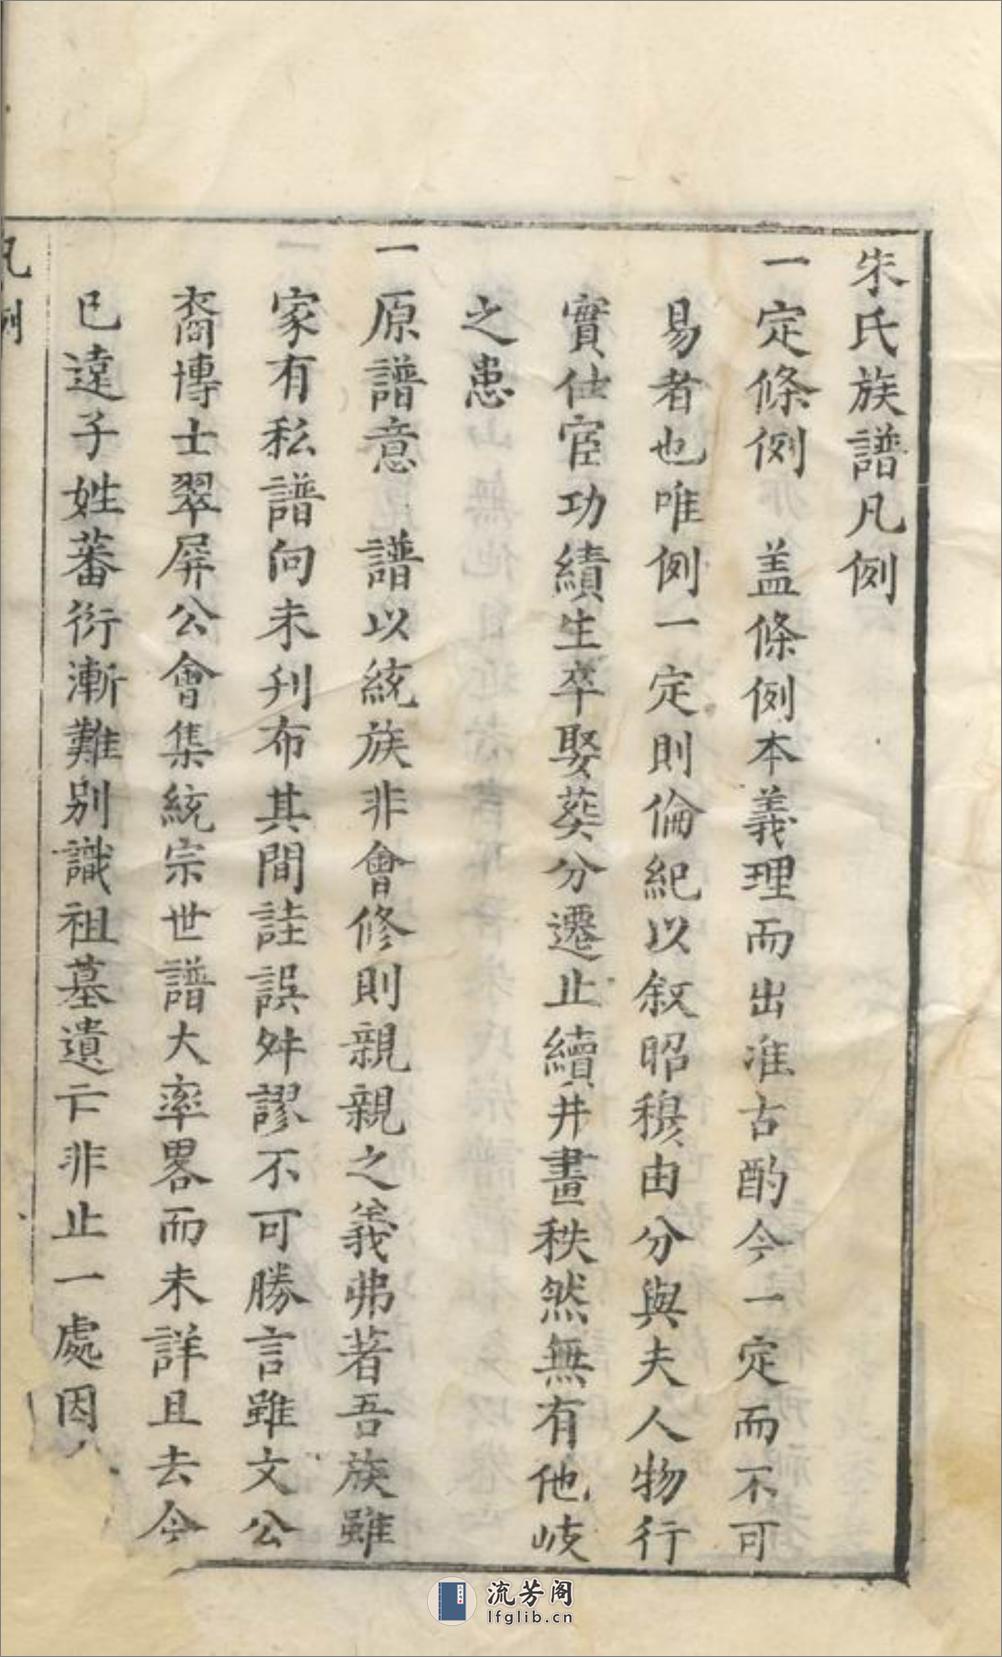 朱氏族譜凡例
一定條例　盖條例本義理而出准古酌今一定而不可
易者也唯例一定則倫紀以叙昭穆由分與夫人物行
實仕宦功績生卒娶葬分遷止續井畫秩然無有他岐
之患
一原譜意　譜以統族非會修則親親之義弗著吾族雖
家有私譜向未刋布其間詿誤舛謬不可勝言雖文公
裔博士翠屏公會集統宗世譜大率畧而未詳且去今
已遠子姓蕃衍漸難別識祖墓遺亡非止一處因
凡例
流芳阁
lfglib.cn